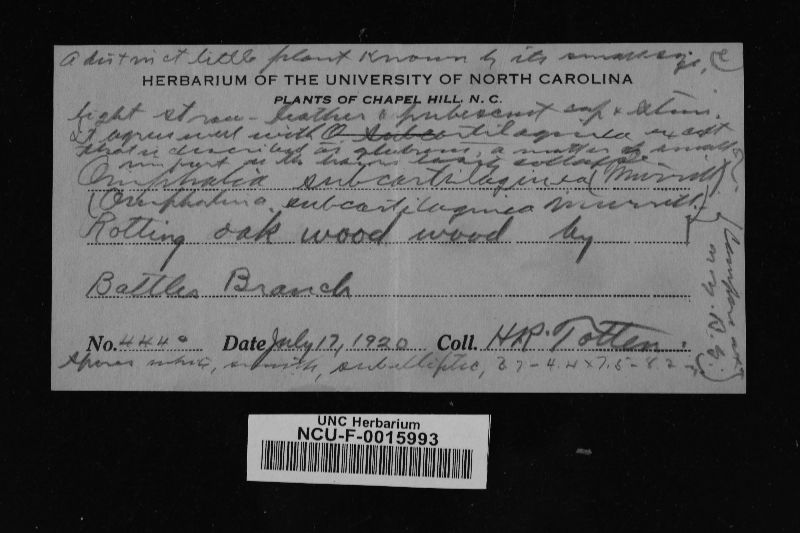 A distinct little plant known by its small size,
HERBARIUM OF THE UNIVERSITY OF NORTH CAROLINA
PLANTS OF CHAPEL HILL, N. C.
light straw - leather & pubescent cap & stem.
It agrees well with O. subcartilaginea except
that is described as glabrous, a matter of small
import as the hairs easily collapse.
Omphalia subcartilaginea (Murrill)
(Omphalina subcartilaginea Murrill.)
Rotting oak wood wood by
Battles Branch
No. 4440 Date July 17, 1920 Coll. H.R. Totten.
Spores white, smooth, subelliptic, 3.7-4.4 x 7.5-8.2
N. Y. B. G.)
UNC Herbarium
NCU-F-0015993